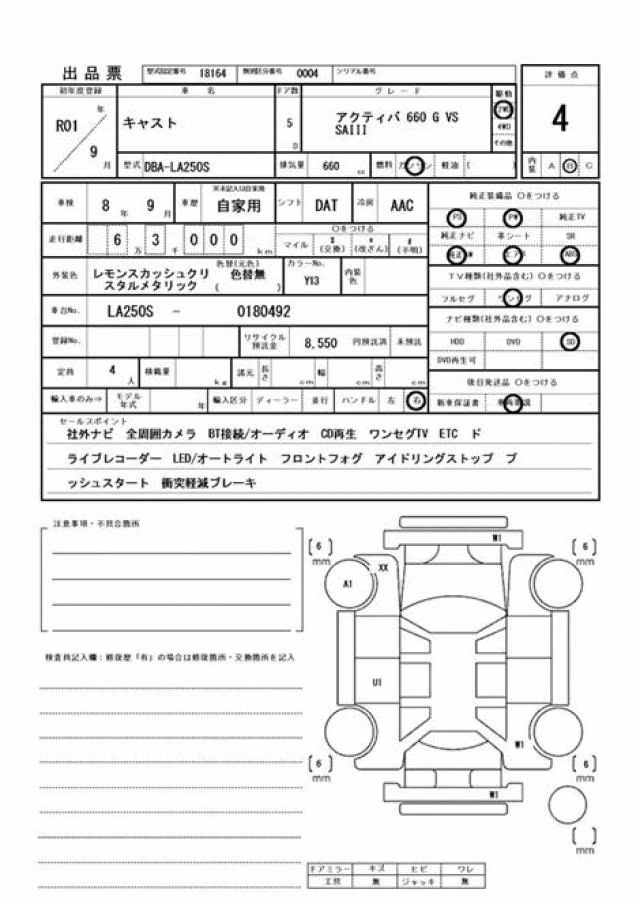 出品票 型式指定番号 18164 類別区分番号 0004 シリアル番号
初年度登録 車名 ドア数 グレード 駆動 評価点
R01 年 9 月
キャスト
5 D
アクティバ 660 G VS
SAIII
2WD
4WD
その他
4
型式 DBA-LA250S 排気量 660 cc 燃料 ガソリン 軽油 ( )
内装 A B C
車検 8 年 9 月 車歴 ※未記入は自家用 自家用 シフト DAT 冷房 AAC
純正装備品 ○をつける
走行距離 6 万 3 千 0 0 0 km
○をつける
マイル $ (交換) * (改ざん) # (不明)
PS PW 純正TV
純正ナビ 革シート SR
純正AW エアB ABS
外装色 レモンスカッシュクリ
スタルメタリック
色替(元色)
( 色替無 )
カラーNo.
Y13
内装色
TV種類(社外品含む) ○をつける
フルセグ ワンセグ アナログ
車台No. LA250S - 0180492
ナビ種類(社外品含む) ○をつける
登録No. リサイクル預託金 8,550 円預託済 未預託
HDD DVD SD
DVD再生可
定員 4 人 積載量 kg 諸元 長さ cm 幅 cm 高さ cm
後日発送品 ○をつける
輸入車のみ⇒ モデル年式 年 輸入区分 ディーラー 並行 ハンドル 左 右
新車保証書
セールスポイント
社外ナビ 全周囲カメラ BT接続/オーディオ CD再生 ワンセグTV ETC ド
ライブレコーダー LED/オートライト フロントフォグ アイドリングストップ プ
ッシュスタート 衝突軽減ブレーキ
注意事項・不具合箇所
検査員記入欄:修復歴「有」の場合は修復箇所・交換箇所を記入
W1
[6] mm
[6] mm
XX
A1
U1
W1
[6] mm
[6] mm
W1
[ ] mm
ドアミラー キズ ヒビ ワレ
工具 無 ジャッキ 無